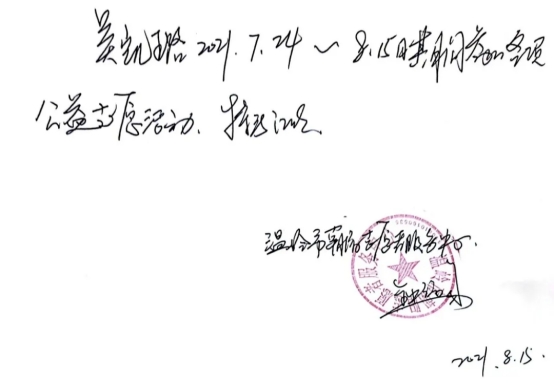 吴凯璐 2021.7.24~8.15日期间参加各项
公益志愿活动、特此证明.
温岭市 志愿者服务中心.
2021.8.15.